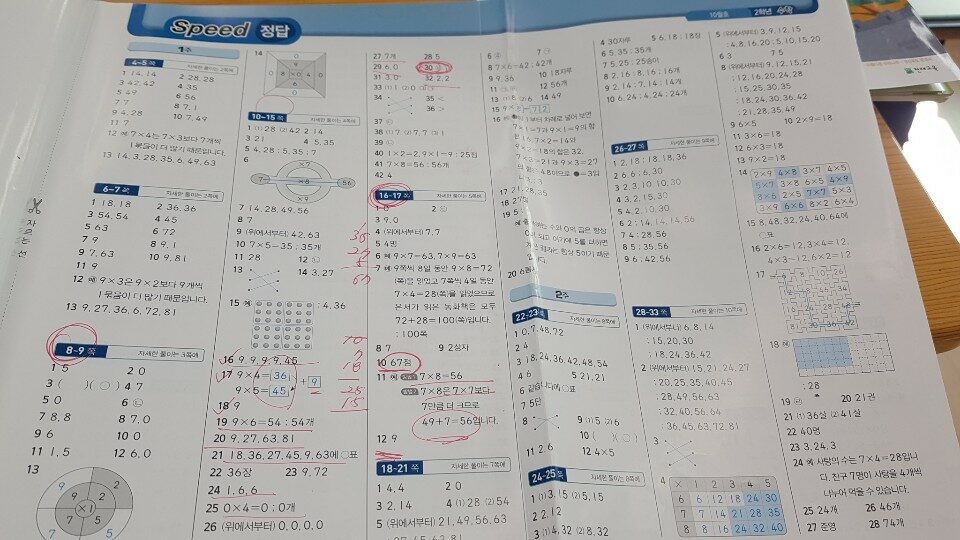 Speed 정답
10월호 2학년
1주
4~5 쪽 자세한 풀이는 2쪽에
1 14, 14 2 28, 28
3 42, 42 4 35
5 49 6 56
7 7 8 7, 1
9 4, 28 10 7, 49
11 7
12 예 7×4는 7×3보다 7개씩
1묶음이 더 많기 때문입니다.
13 14, 3, 28, 35, 6, 49, 63
6~7 쪽 자세한 풀이는 2쪽에
1 18, 18 2 36, 36
3 54, 54 4 45
5 63 6 72
7 9 8 9, 1
9 7, 63 10 9, 81
11 9
12 예 9×3은 9×2보다 9개씩
1묶음이 더 많기 때문입니다.
13 9, 27, 36, 6, 72, 81
8~9 쪽 자세한 풀이는 3쪽에
1 5 2 0
3 ( )(○) 4 7
5 0 6 ㉡
7 8, 8 8 7, 0
9 6 10 0
11 1, 5 12 6, 0
13
14
10~15 쪽 자세한 풀이는 4쪽에
1 (1) 28 (2) 42 2 14
3 21 4 5, 35
5 4, 28 ; 5, 35 ; 7
6
×7
7 ×8 56
×9
7 14, 28, 49, 56
8 7
9 (위에서부터) 42, 63
10 7×5=35 ; 35개
11 28 12 ㉡
13 14 3, 27
15 예 ; 4, 36
16 9, 9, 9, 9, 45
17 9×4=36
9×5=45 +9
18 9
19 9×6=54 ; 54개
20 9, 27, 63, 81
21 18, 36, 27, 45, 9, 63에 ○표
22 36장 23 9, 72
24 1, 6, 6
25 0×4=0 ; 0개
26 (위에서부터) 0, 0, 0, 0
27 7개 28 5
29 6, 0
31 3, 0 32 2, 2
34 35 <
36 >
40 1×2=2, 9×1=9 ; 25점
41 7×8=56 ; 56개
42 4
16~17 쪽 자세한 풀이는 5쪽에
2 ㉡
3 9, 0
4 (위에서부터) 7, 7
5 4명
6 예 9×7=63, 7×9=63
7 예 9쪽씩 8일 동안 9×8=72
(쪽)을 읽었고 7쪽씩 4일 동안
7×4=28(쪽)을 읽었으므로
은서가 읽은 동화책은 모두
72+28=100(쪽)입니다.
; 100쪽
8 7 9 2상자
10 67점
11 예 7×8=56
7×8은 7×7보다
7만큼 더 크므로
49+7=56입니다.
12 9
18~21 쪽 자세한 풀이는 7쪽에
1 4, 4 2 0
3 2, 14 4 (1) 28 (2) 54
5 (위에서부터) 21, 49, 56, 63
8 7×6=42 ; 42개
9 9, 36 10 18자루
12 56개
14 49
17 21, 28, 35
18 27
2주
22~23 쪽
1 0, 7, 48, 72
2 4
3 18, 24, 36, 42, 48, 54
4 6 5 21, 21
7 5단
8 9 (1) 5 (2) 6
10 ( )(○)
11 2, 6 12 4×5
24~25 쪽 자세한 풀이는 8쪽에
1 (1) 3, 15 (2) 5, 15
2 2, 12
3 (1) 4, 32 (2) 8, 32
4 30자루 5 6, 18 ; 18장
6 5, 35 ; 35개
7 5, 25 ; 25송이
8 2, 16 ; 8, 16 ; 16개
9 2, 14 ; 7, 14 ; 14개
10 6, 24 ; 4, 24 ; 24개
26~27 쪽
1 2, 18 ; 18, 18, 36
2 6, 6 ; 6, 30
3 2, 3, 10, 10, 30
4 3, 2, 15, 30
5 4, 2, 10, 30
6 2 ; 14, 14, 14, 56
7 4 ; 28, 56
8 5 ; 35, 56
9 6 ; 42, 56
28~33 쪽 자세한 풀이는 10쪽에
1 (위에서부터) 6, 8, 14
; 15, 20, 30
; 18, 24, 36, 42
2 (위에서부터) 15, 21, 24, 27
; 20, 25, 35, 40, 45
; 28, 49, 56, 63
; 32, 40, 56, 64
; 36, 45, 63, 72, 81
3
4
× 1 2 3 4 5
6 6 12 18 24 30
7 7 14 21 28 35
8 8 16 24 32 40
5 (위에서부터) 3, 9, 12, 15
; 4, 8, 16, 20 ; 5, 10, 15, 20
6 3 7 5
8 (위에서부터) 9, 12, 15, 21
; 12, 16, 20, 24, 28
; 15, 25, 30, 35
; 18, 24, 30, 36, 42
; 21, 28, 35, 49
9 6×5 10 2×9=18
11 3×6=18
12 6×3=18
13 9×2=18
14
2×9 4×8 3×7 4×5
5×7 3×8 6×5 4×9
8×6 2×5 7×7 5×3
3×9 6×6 8×2 6×4
15 8, 48, 32, 24, 40, 64에
○표
16 2×6=12, 3×4=12,
4×3=12, 6×2=12
17
18 예
; 28
19 ㉣ 20 21권
21 (1) 36살 (2) 41살
22 40명
23 3, 24, 3
24 예 사탕의 수는 7×4=28입니
다. 친구 7명이 사탕을 4개씩
나누어 먹을 수 있습니다.
25 24개 26 46개
27 준영 28 74개